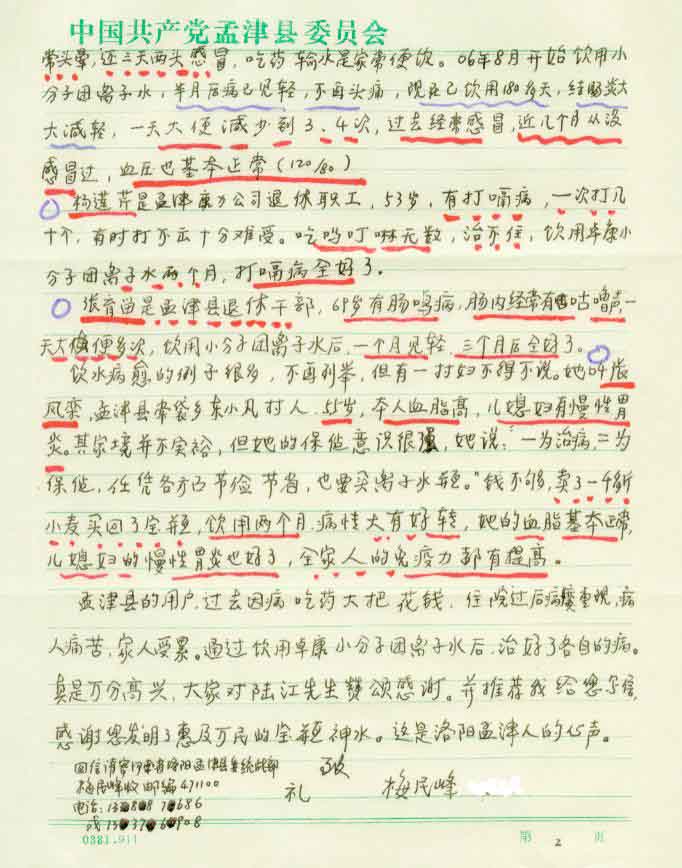 中国共产党孟津县委员会
常头晕,还三天两头感冒,吃药输水是家常便饭。06年8月开始饮用小
分子团离子水,半月后病已见轻,不再头痛,现在已饮用180多天,结肠炎大
大减轻,一天大便减少到3、4次,过去经常感冒,近几个月从没
感冒过,血压也基本正常(120/80)
杨莲芹是孟津康力公司退休职工,53岁,有打嗝病,一次打几
十个,有时打不出十分难受。吃吗叮啉无数,治不住,饮用卓康小
分子团离子水两个月,打嗝病全好了。
张育苗是孟津县退休干部,69岁有肠鸣病,肠内经常有咕噜声,一
天大便多次,饮用小分子团离子水后,一个月见轻,三个月后全好了。
饮水病愈的例子很多,不再列举,但有一村妇不得不说。她叫张
凤栾,孟津县常袋乡东小凡村人,55岁,本人血脂高,儿媳妇有慢性胃
炎。其家境并不宽裕,但她的保健意识很强,她说:“一为治病,二为
保健,任凭各方面节俭节省,也要买离子水瓶。”钱不够,卖3-4百斤
小麦买回了宝瓶,饮用两个月,病情大有好转,她的血脂基本正常,
儿媳妇的慢性胃炎也好了,全家人的免疫力都有提高。
孟津县的用户,过去因病吃药大把花钱,住院过后病复重现,病
人痛苦,家人受累。通过饮用卓康小分子团离子水后,治好了各自的病。
真是万分高兴,大家对陆江先生赞颂感谢。并推荐我给您写信,
感谢您发明了惠及万民的宝瓶神水。这是洛阳孟津人的心声。
致
回信请寄河南省洛阳孟津县委统战部
礼 梅民峰
梅民峰收 邮编471100
电话:
或
0381.911
第 2 页